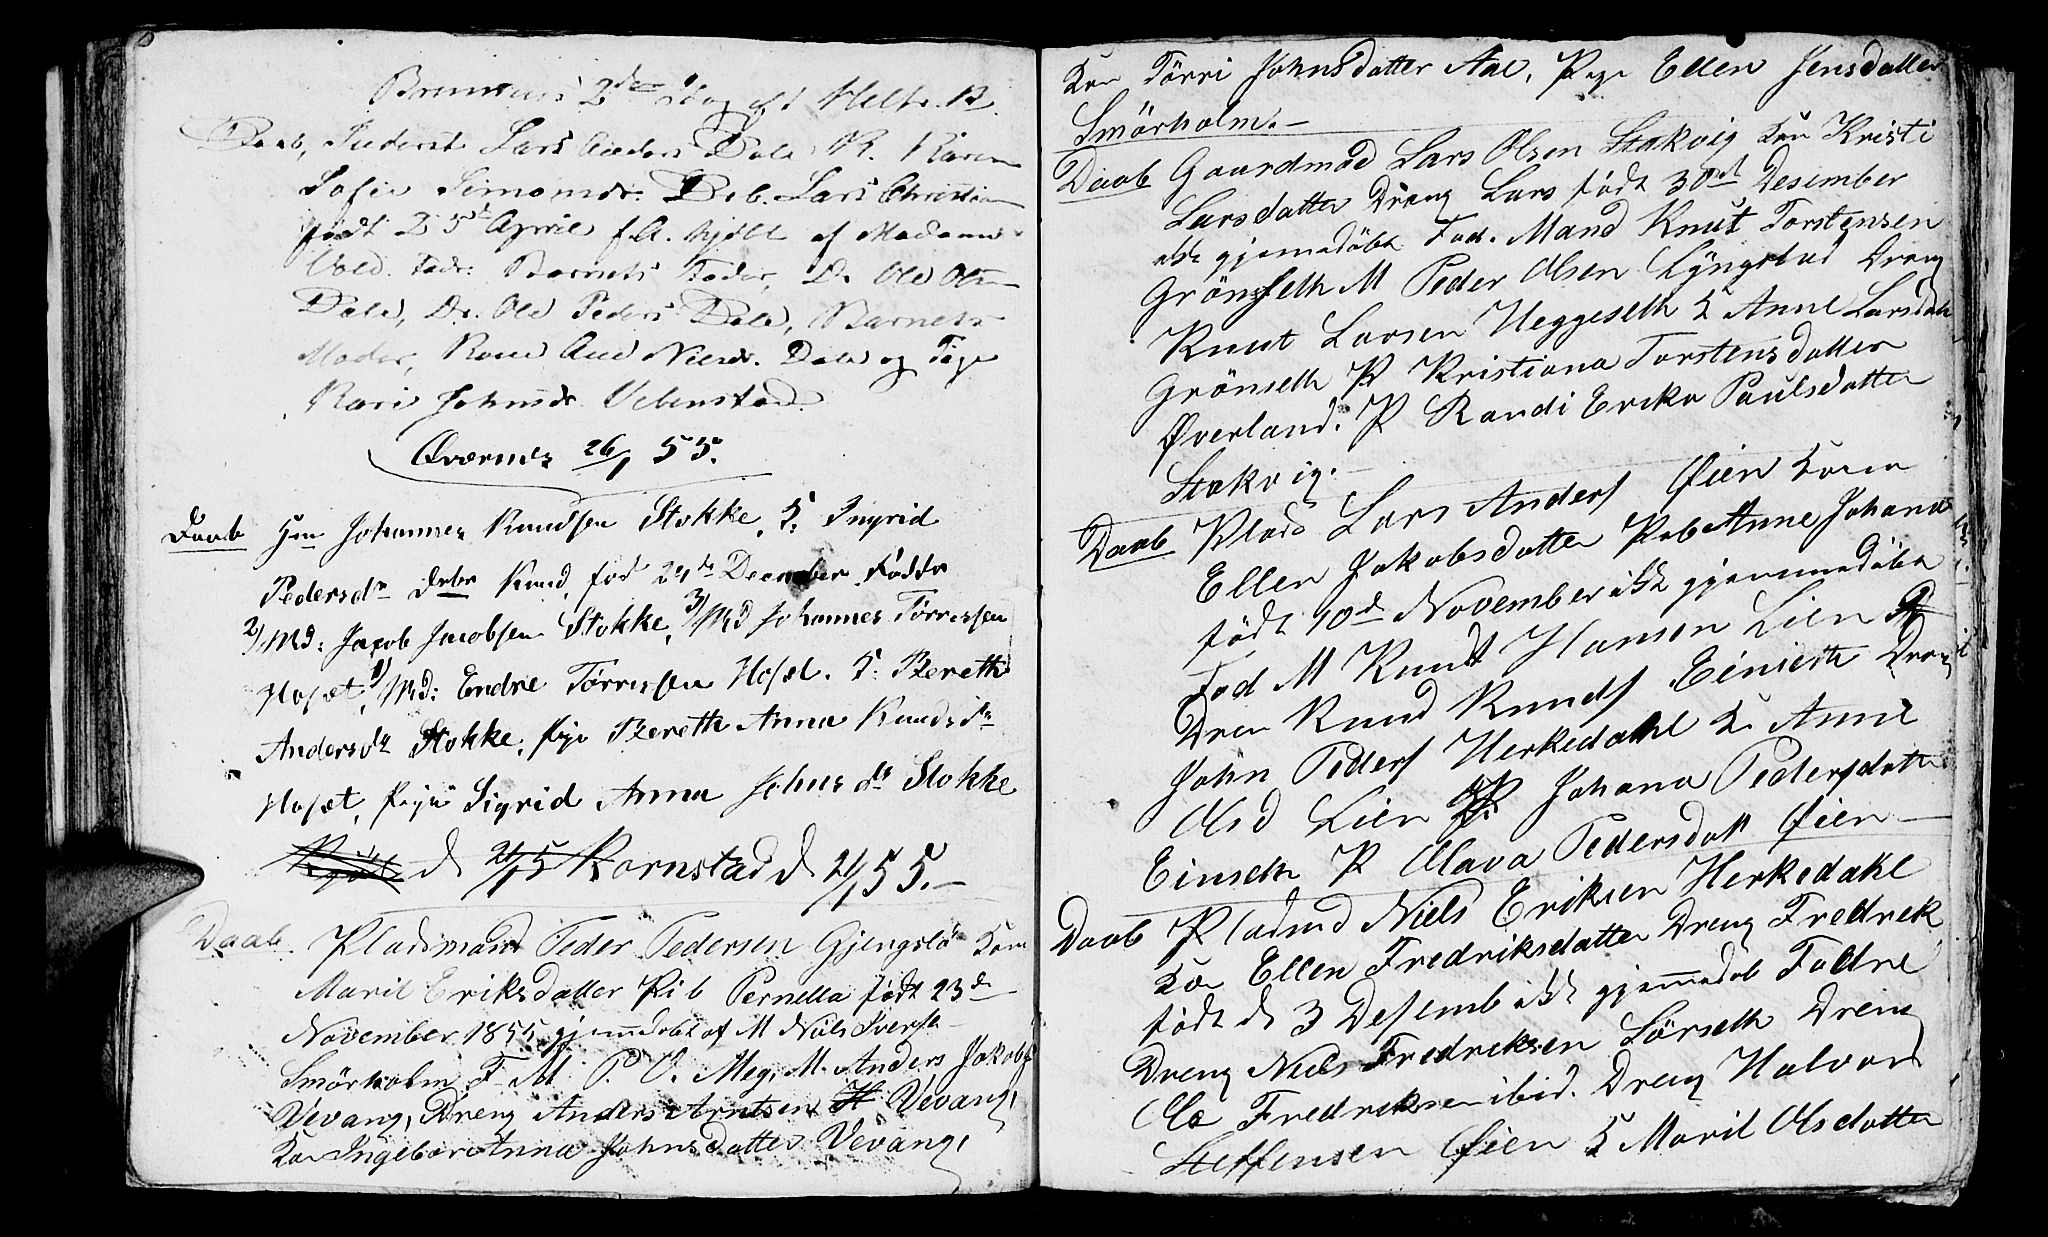 Bremsnes 2den Dag af Helg. R.
Daab, Inderst Lars Anders Dale K. Karen
Sofie Simonds. Db. Lars Christian
født 25de April f.A. hjdbt af Madame
Vold. Fadr: Barnets Fader, Dr. Ole Ols
Dale, Dr. Ole Peders Dale, Barnets
Moder, Kone Ane Nilsd. Dale og Pige
Kari Johnsdr. Vebenstad.
Øvernes 26/1 55.
Daab Gm Johannes Knudsen Stokke, K. Ingrid
Pedersdr Drbr Knud, fød 24de December Faddr
2/ Md: Jacob Jacobsen Stokke, 3/ Md Johannes Tørresen
Hoset, 1/ Md: Endre Tørresen Hoset. K. Bereth
Andersdr Stokke, Pige Bereth Anna Knudsdr
Hoset, Pige Sigrid Anna Johnsdr Stokke
d 21/1 5 Kornstad d 21/1 55.
Daab. Pladsmand Peder Pedersen Gjengslø Kone
Marit Eriksdatter Pib Pernella født 23de
November 1855 gjemdøbt af M Niels Iversen
Smörholm F. M P. O. Meg, M. Anders Jakobs
Vevang, Dreng Anders Arntsen H Vevang,
Kon Ingebor Anna Johnsdatter Vevang,
Kon Törri Johnsdatter Aae, Pige Ellen Jensdatter
Smörholm.
Daab Gaardmad Lars Olsen Stakvig Kon Kristi
Larsdatter Dreng Lars födt 30de Desember
ikke gjemedöbt Fad. Mand Knut Torstensen
Grönseth M Peder Olsen Lyngstad Dreng
Knut Larsen Heggeseth K Anne Larsdatt
Grönseth P Kristiana Torstensdatter
Øverland. P Randi Erika Paulsdatter
Stakvig.
Daab Plads Lars Anders Øien Kone
Ellen Jakobsdatter Pib Anne Johana
født 10de November ikk gjemmedöbt
Fad M Knudt Hansen Lien
Dren Knud Knuds Einseth Dreng
John Peders Herkedahl K Anne
Olsd Lien P. Johana Pedersdatt
Einseth P Olava Pedersdatt Øien
Daab Pladsmd Niels Eriksen Herkedahl
Kon Ellen Fredriksdatter Dreng Fredrek
født d 3 Desemb ikk gjemmedöb Fadre
Dreng Niels Fredreksen Sörseth Dreng
Ole Fredreksen ibid. Dreng Halvor
Steffensen Øien K Marit Olsdatter